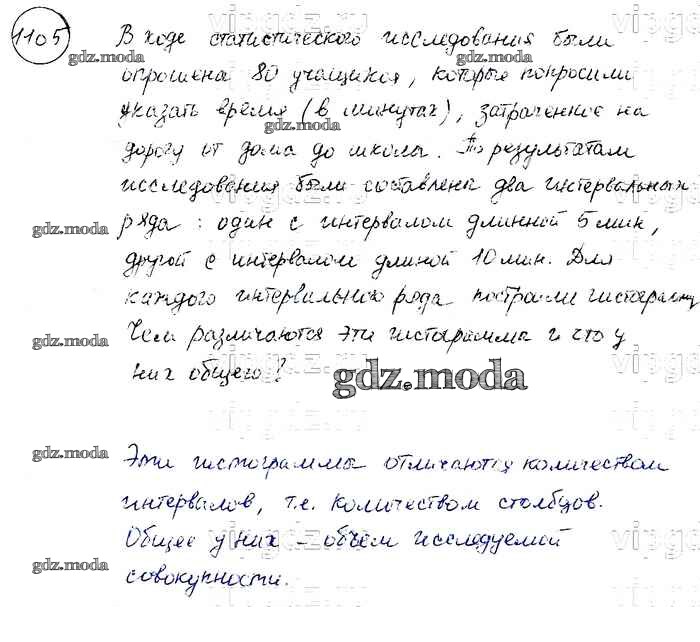 1105
В ходе статистического исследования были
опрошена 80 учащихся, которые попросили
указать время (в минутах), затраченное на
дорогу от дома до школы. По результатам
исследования были составлены два интервальных
ряда: один с интервалом длинной 5 мин,
другой с интервалом длиной 10 мин. Для
каждого интервального ряда построили гистограмму
Чем различаются эти гистограммы и что у
них общего?
Эти гистограммы отличаются количеством
интервалов, т.е. количеством столбцов.
Общее у них – объём исследуемой
совокупности.
gdz.moda
gdz.moda
gdz.moda
gdz.moda
gdz.moda
gdz.moda
gdz.moda
gdz.moda